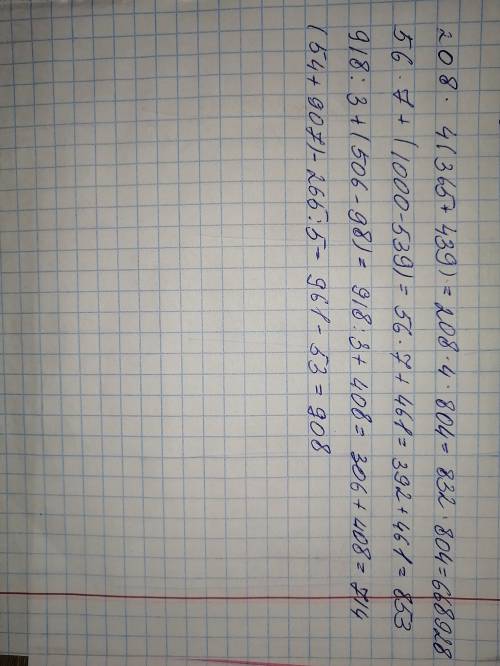 208 · 4(365+439) = 208·4·804 = 832·804=668928
56 · 7 + (1000-539) = 56·7+461 = 392+461 = 853
918:3+(506-98) = 918:3+408 = 306+408 = 714
(54+907)-265:5 = 961-53 = 908